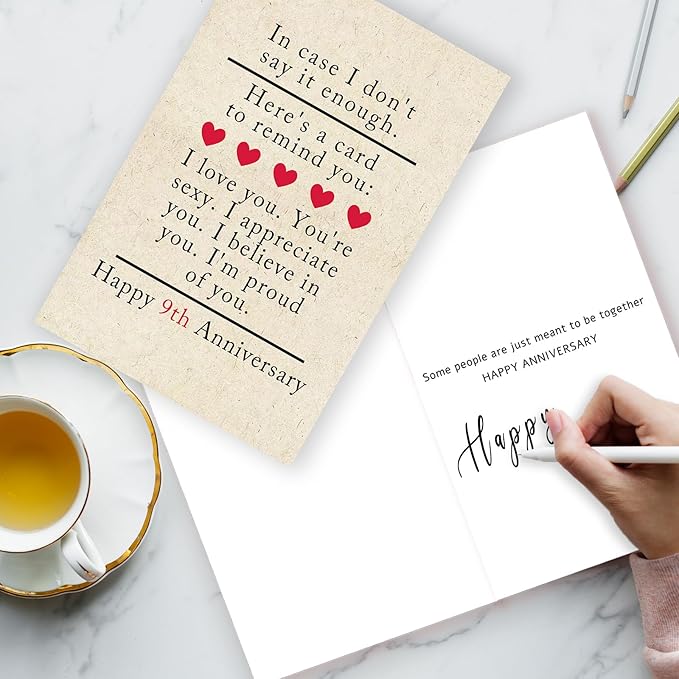 In case I don't
say it enough.
Here's a card
to remind you:
I love you. You're
sexy. I appreciate
you. I believe in
you. I'm proud
of you.
Happy 9th Anniversary
Some people are just meant to be together
HAPPY ANNIVERSARY
Happy